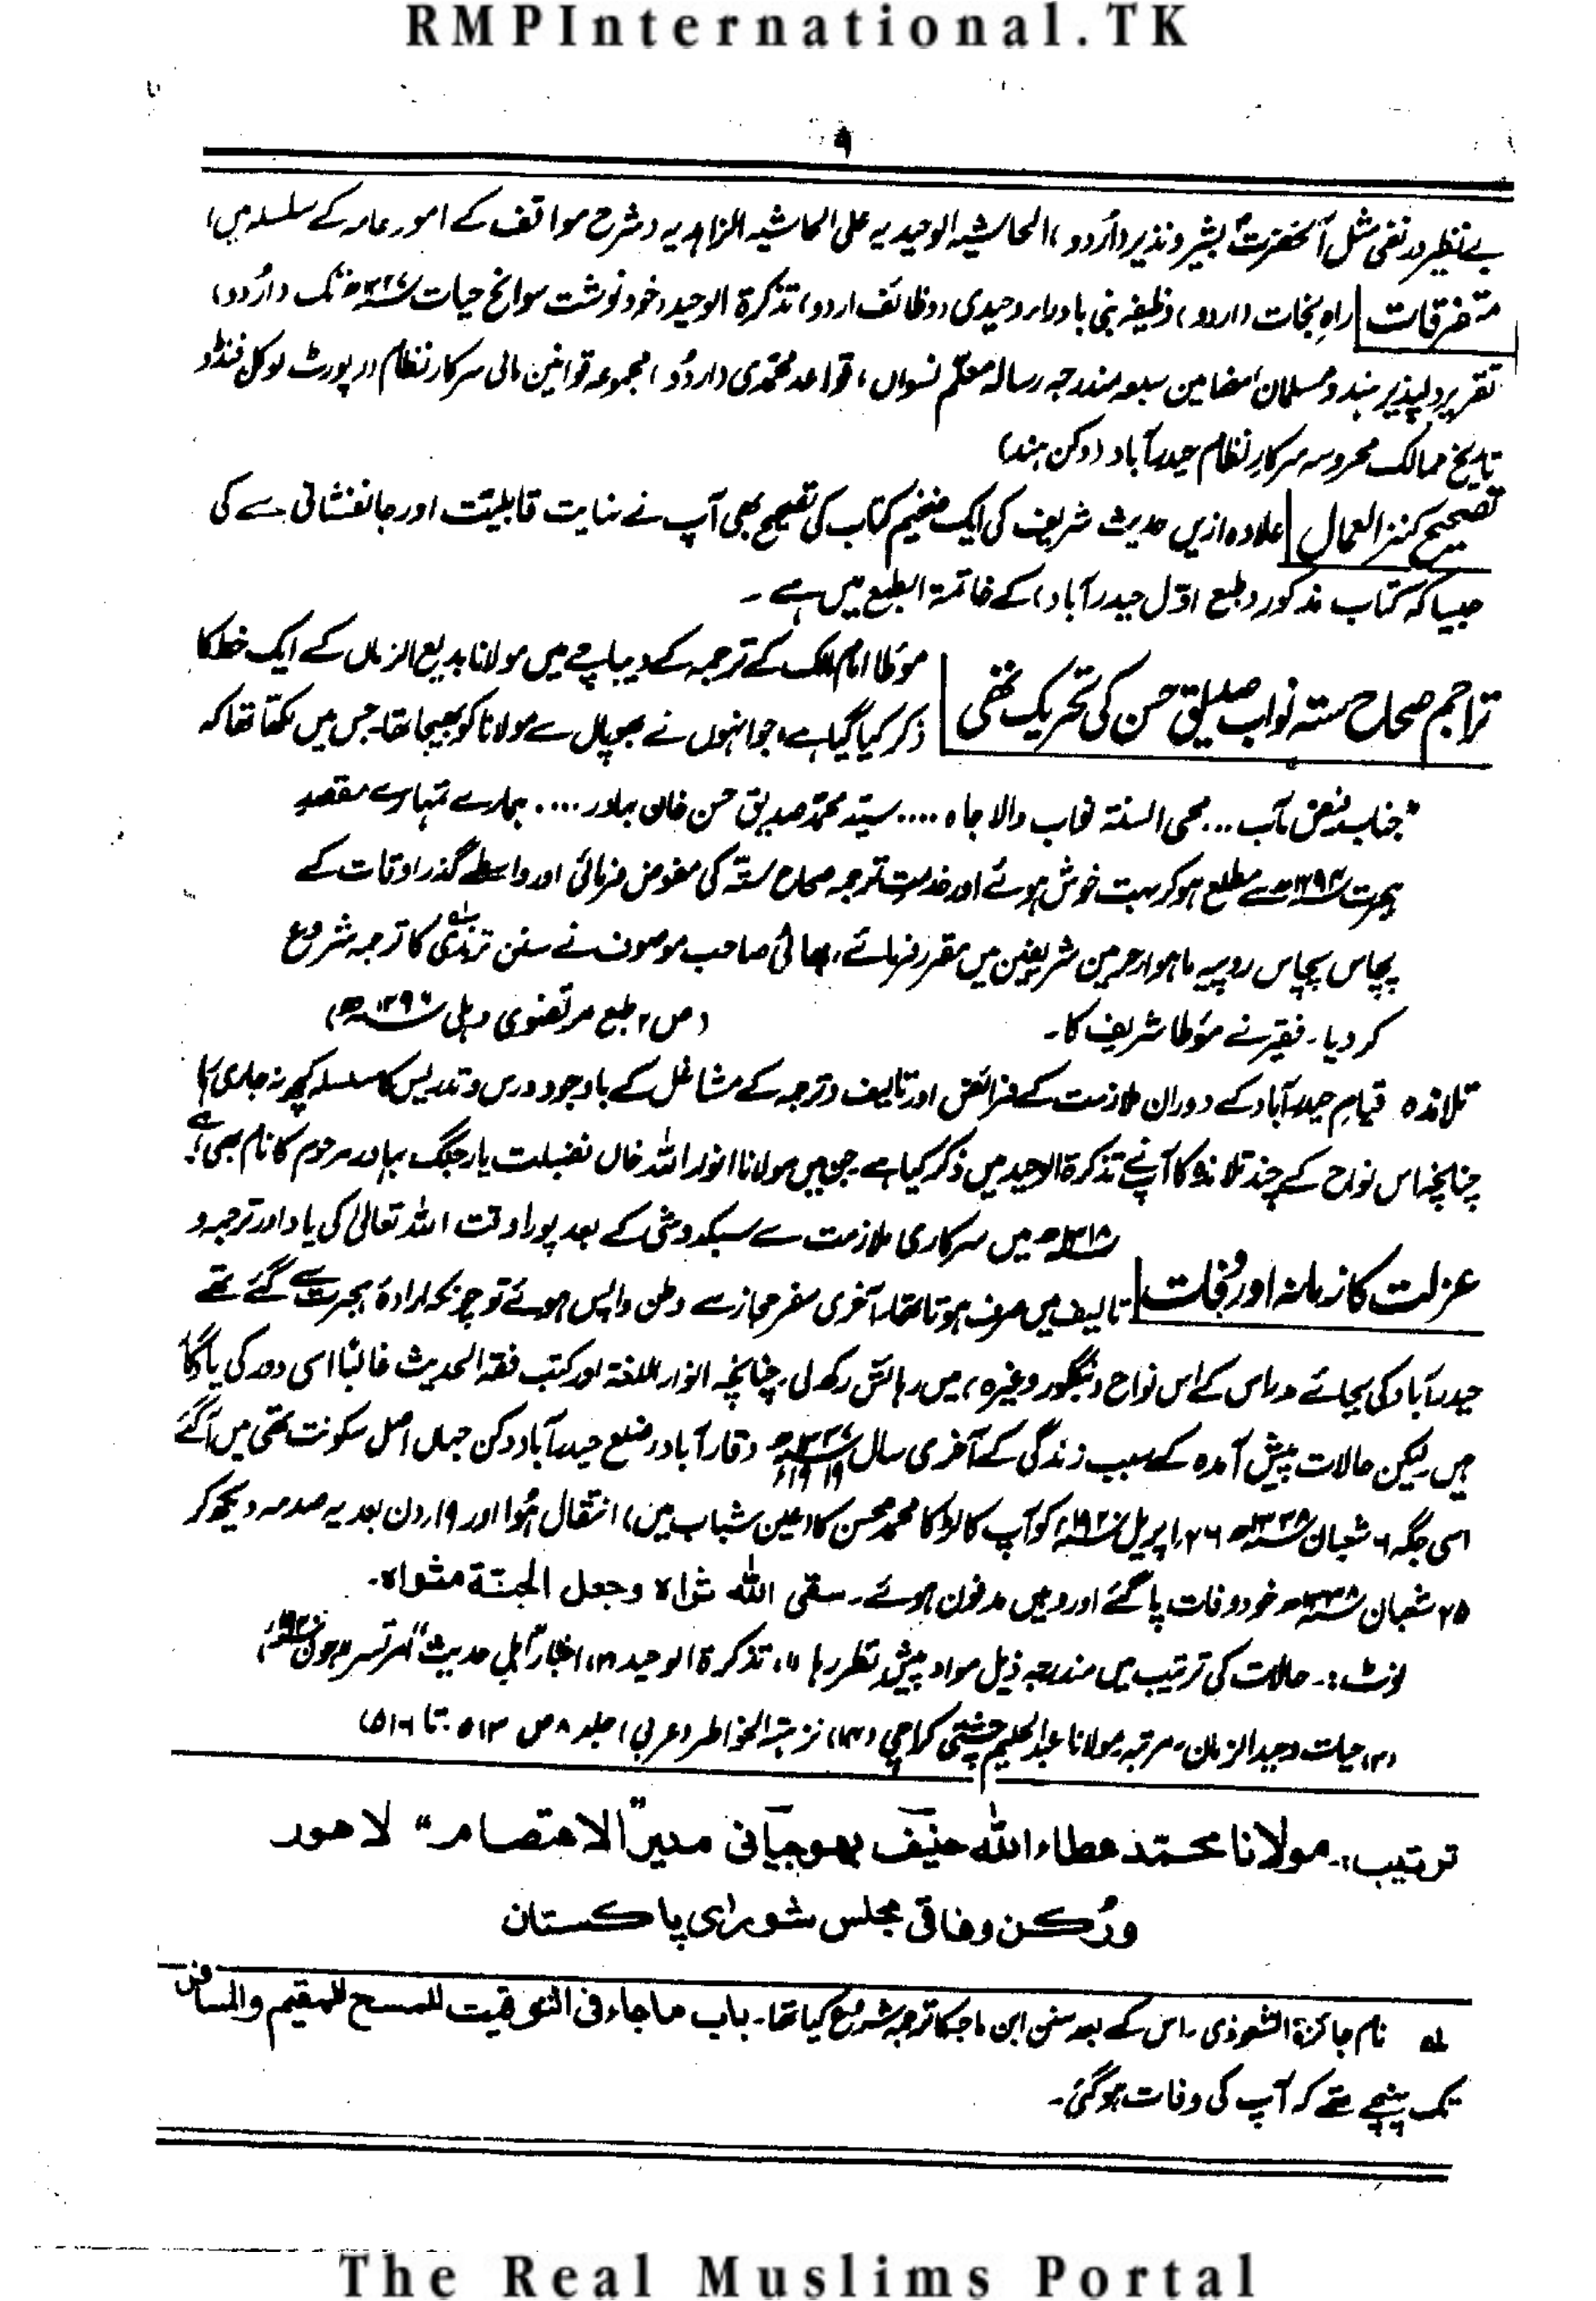 RMPInternational.TK
۹
بے نظیر در نفی مثل آنحضرتؐ بشیر و نذیر (اُردو)، الحاشیہ الوحیدیہ علی الحاشیہ الزاہدیہ (شرح مواقف کے امور عامہ کے سلسلہ میں)
متفرقات راہِ نجات (اردو)، وظیفہ نبی باوراد وحیدی (وظائف اردو)، تذکرۃ الوحید (خود نوشت سوانح حیات تک (اُردو)
تقریر دلپذیر ہندو مسلمان، مضامین سبعہ مندرجہ رسالہ معلّم نسواں، قواعد محمّدی (اردُو)، مجموعہ قوانین مالی سرکار نظام، رپورٹ لوکل فنڈ و
تاریخ ممالک محروسہ سرکار نظام حیدرآباد (دکن ہند)
تصحیح کنز العمال علاوہ ازیں حدیث شریف کی ایک ضخیم کتاب کی تصحیح بھی آپ نے نہایت قابلیت اور جانفشانی سے کی
جیسا کہ کتاب مذکور (طبع اوّل حیدرآباد) کے خاتمۃ الطبع میں ہے ۔
تراجم صحاح ستہ نواب صدیق حسن کی تحریک تھی مؤطا امام مالک کے ترجمہ کے دیباچے میں مولانا بدیع الزماں کے ایک خط کا
ذکر کیا گیا ہے، جو انہوں نے بھوپال سے مولانا کو بھیجا تھا۔ جس میں لکھتا تھا کہ
"جناب فیض مآب ... محی السنۃ نواب والا جاہ .... سیّد محمّد صدیق حسن خان بہادر .... ہمارے تمہارے مقصدِ
ہجرت ۱۲۹۴ھ سے مطلع ہو کر بہت خوش ہوئے اور خدمت ترجمہ صحاح ستّہ کی مفوض فرمائی اور واسطے گذر اوقات کے
پچاس پچاس روپیہ ماہوار حرمین شریفین میں مقرر فرمائے، بھائی صاحب موصوف نے سنن ترمذی؎۱ کا ترجمہ شروع
کر دیا۔ فقیر نے مؤطا شریف کا۔ (ص ۲ طبع مرتضوی دہلی ۱۲۹۶ھ)
تلامذہ قیامِ حیدرآباد کے دوران ملازمت کے فرائض اور تالیف و ترجمہ کے مشاغل کے باوجود درس و تدریس کا سلسلہ کچھ نہ جاری رہا
چنانچہ اس نواح کے چند تلامذہ کا آپنے تذکرۃ الوحید میں ذکر کیا ہے جن میں مولانا انوار اللہ خاں فضیلت یار جنگ بہادر مرحوم کا نام بھی ہے۔
عزلت کا زمانہ اور وفات ۱۳۱۸ھ میں سرکاری ملازمت سے سبکدوشی کے بعد پورا وقت اللہ تعالیٰ کی یاد اور ترجمہ و
تالیف میں صرف ہوتا تھا، آخری سفر حجاز سے وطن واپس ہوئے تو چونکہ ارادۂ ہجرت سے گئے تھے
حیدرآباد کی بجائے مدراس کے اس نواح (بنگلور وغیرہ) میں رہائش رکھ لی۔ چنانچہ انوار اللغۃ اور کتب فقہ الحدیث غالباً اسی دور کی یادگار
ہیں لیکن حالات پیش آمدہ کے سبب زندگی کے آخری سال وقار آباد (ضلع حیدرآباد دکن جہاں اصل سکونت تھی) میں آگئے
اسی جگہ ۶ شعبان ۱۳۳۸ھ ۲۶ اپریل ۱۹۲۰ء کو آپ کا لڑکا محمد محسن کا (عین شباب میں) انتقال ہُوا اور ۱۹ دن بعد یہ صدمہ دیکھ کر
۲۵ شعبان ۱۳۳۸ھ خود وفات پا گئے اور وہیں مدفون ہوئے۔ سقی اللہ ثراہ وجعل الجنّة مثواہ۔
نوٹ:۔ حالات کی ترتیب میں مندرجہ ذیل مواد پیش نظر رہا (۱) تذکرۃ الوحید (۲) اخبار "اہل حدیث" امرتسر جون ۱۹۲۰ء
(۳) حیات وحید الزمان۔ مرتبہ مولانا عبدالحلیم چشتی کراچی (۴) نزہۃ الخواطر (عربی) جلد ۸ ص ۵۱۳ تا ۵۱۶)
ترتیب:۔ مولانا محمّد عطاء اللہ حنیف بھوجیانی مدیر "الاعتصام" لاہور
ورُکن وفاقی مجلس شورای پاکستان
؎۱ نام جائزة الشعوذی۔ اس کے بعد سنن ابن ماجہ کا ترجمہ شروع کیا تھا۔ باب ماجاء فی التوقیت للمسح للمقیم والمسافر
تک پہنچے تھے کہ آپ کی وفات ہوگئی۔
The Real Muslims Portal